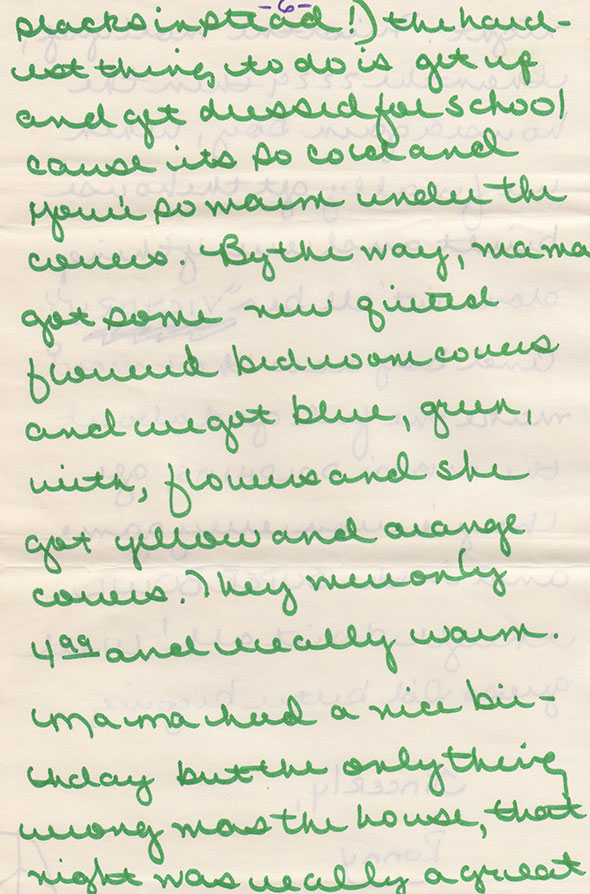 -6-
slacks instead!) the hard-
est thing, to do is get up
and get dressed for school
cause its so cold and
your so warm under the
covers. By the way, mama
got some new quited
flowered bedroom covers
and we got blue, green,
with, flowers and she
got yellow and orange
covers. They were only
4.99 and really warm.
Mama had a nice bir-
thday but the only thing
wrong was the house, that
night was really a great